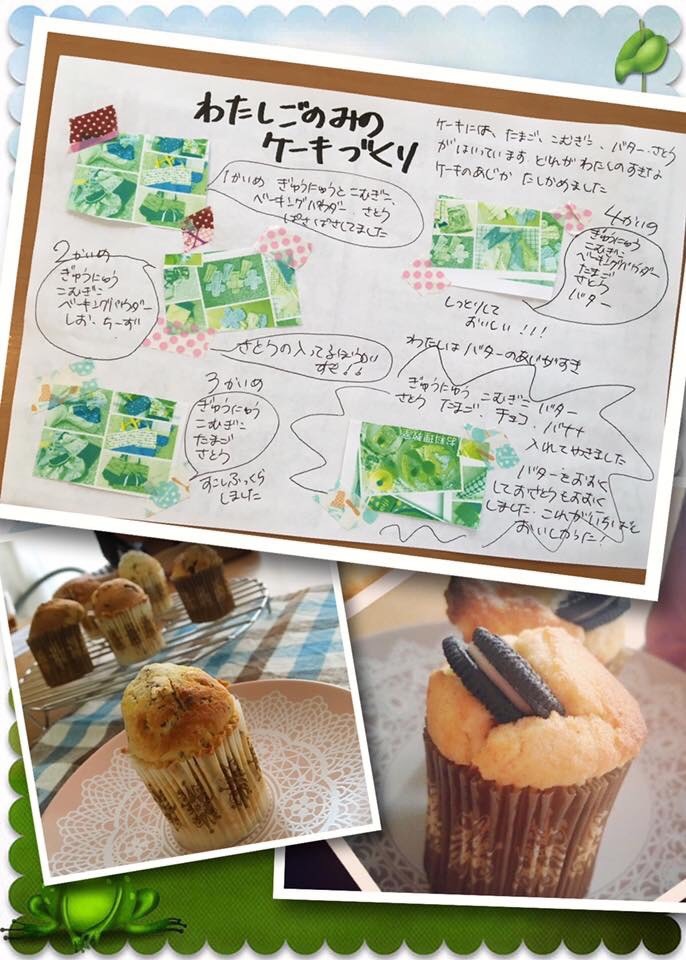 わたしごのみの
ケーキづくり
ケーキには、たまご、こむぎこ、バター、さとう
がはいっています どれが わたしのすきな
ケーキのあじか たしかめました
1かいめ ぎゅうにゅうとこむぎこ、
ベーキングパウダー、さとう
ぱさぱさしてました
2かいめ
ぎゅうにゅう
こむぎこ
ベーキングパウダー
しお、ちーず
さとうの入ってるほうが
すき!!
3かいめ
ぎゅうにゅう
こむぎこ
たまご
さとう
すこしふっくら
しました
4かいめ
ぎゅうにゅう
こむぎこ
ベーキングパウダー
たまご
さとう
バター
しっとりして
おいしい!!!
わたしはバターのあじがすき
ぎゅうにゅう こむぎこ バター
さとう たまご、チョコ、バナナ
入れてやきました
バターをおおく
しておさとうもおおく
しました。これがいちばん
おいしかった!
お料理教室